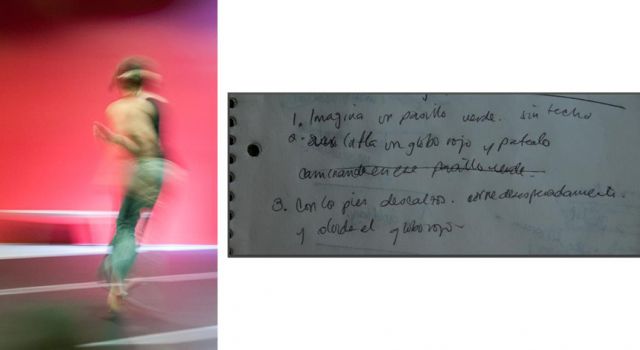 1. Imagina un pasillo verde. sin techo
2. Infla un globo rojo y patealo
caminando en ese pasillo verde.
3. Con los pies descalzos. corre desesperadamente.
y olvida el globo rojo